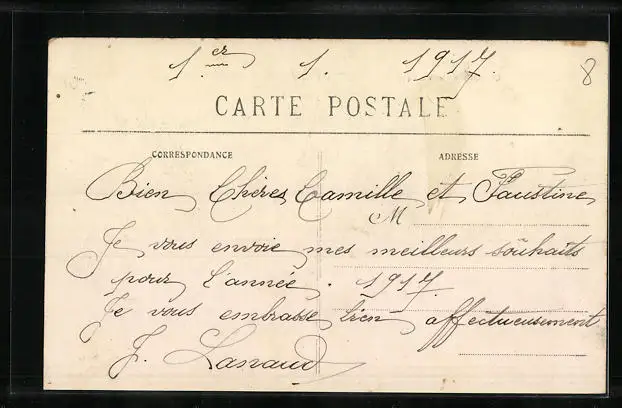 1.er 1. 1917.
8
CARTE POSTALE
CORRESPONDANCE ADRESSE
Bien Chères Camille et Faustine
M
Je vous envoie mes meilleurs souhaits
pour l'année. 1917.
Je vous embrasse bien affectueusement
J. Lanaud